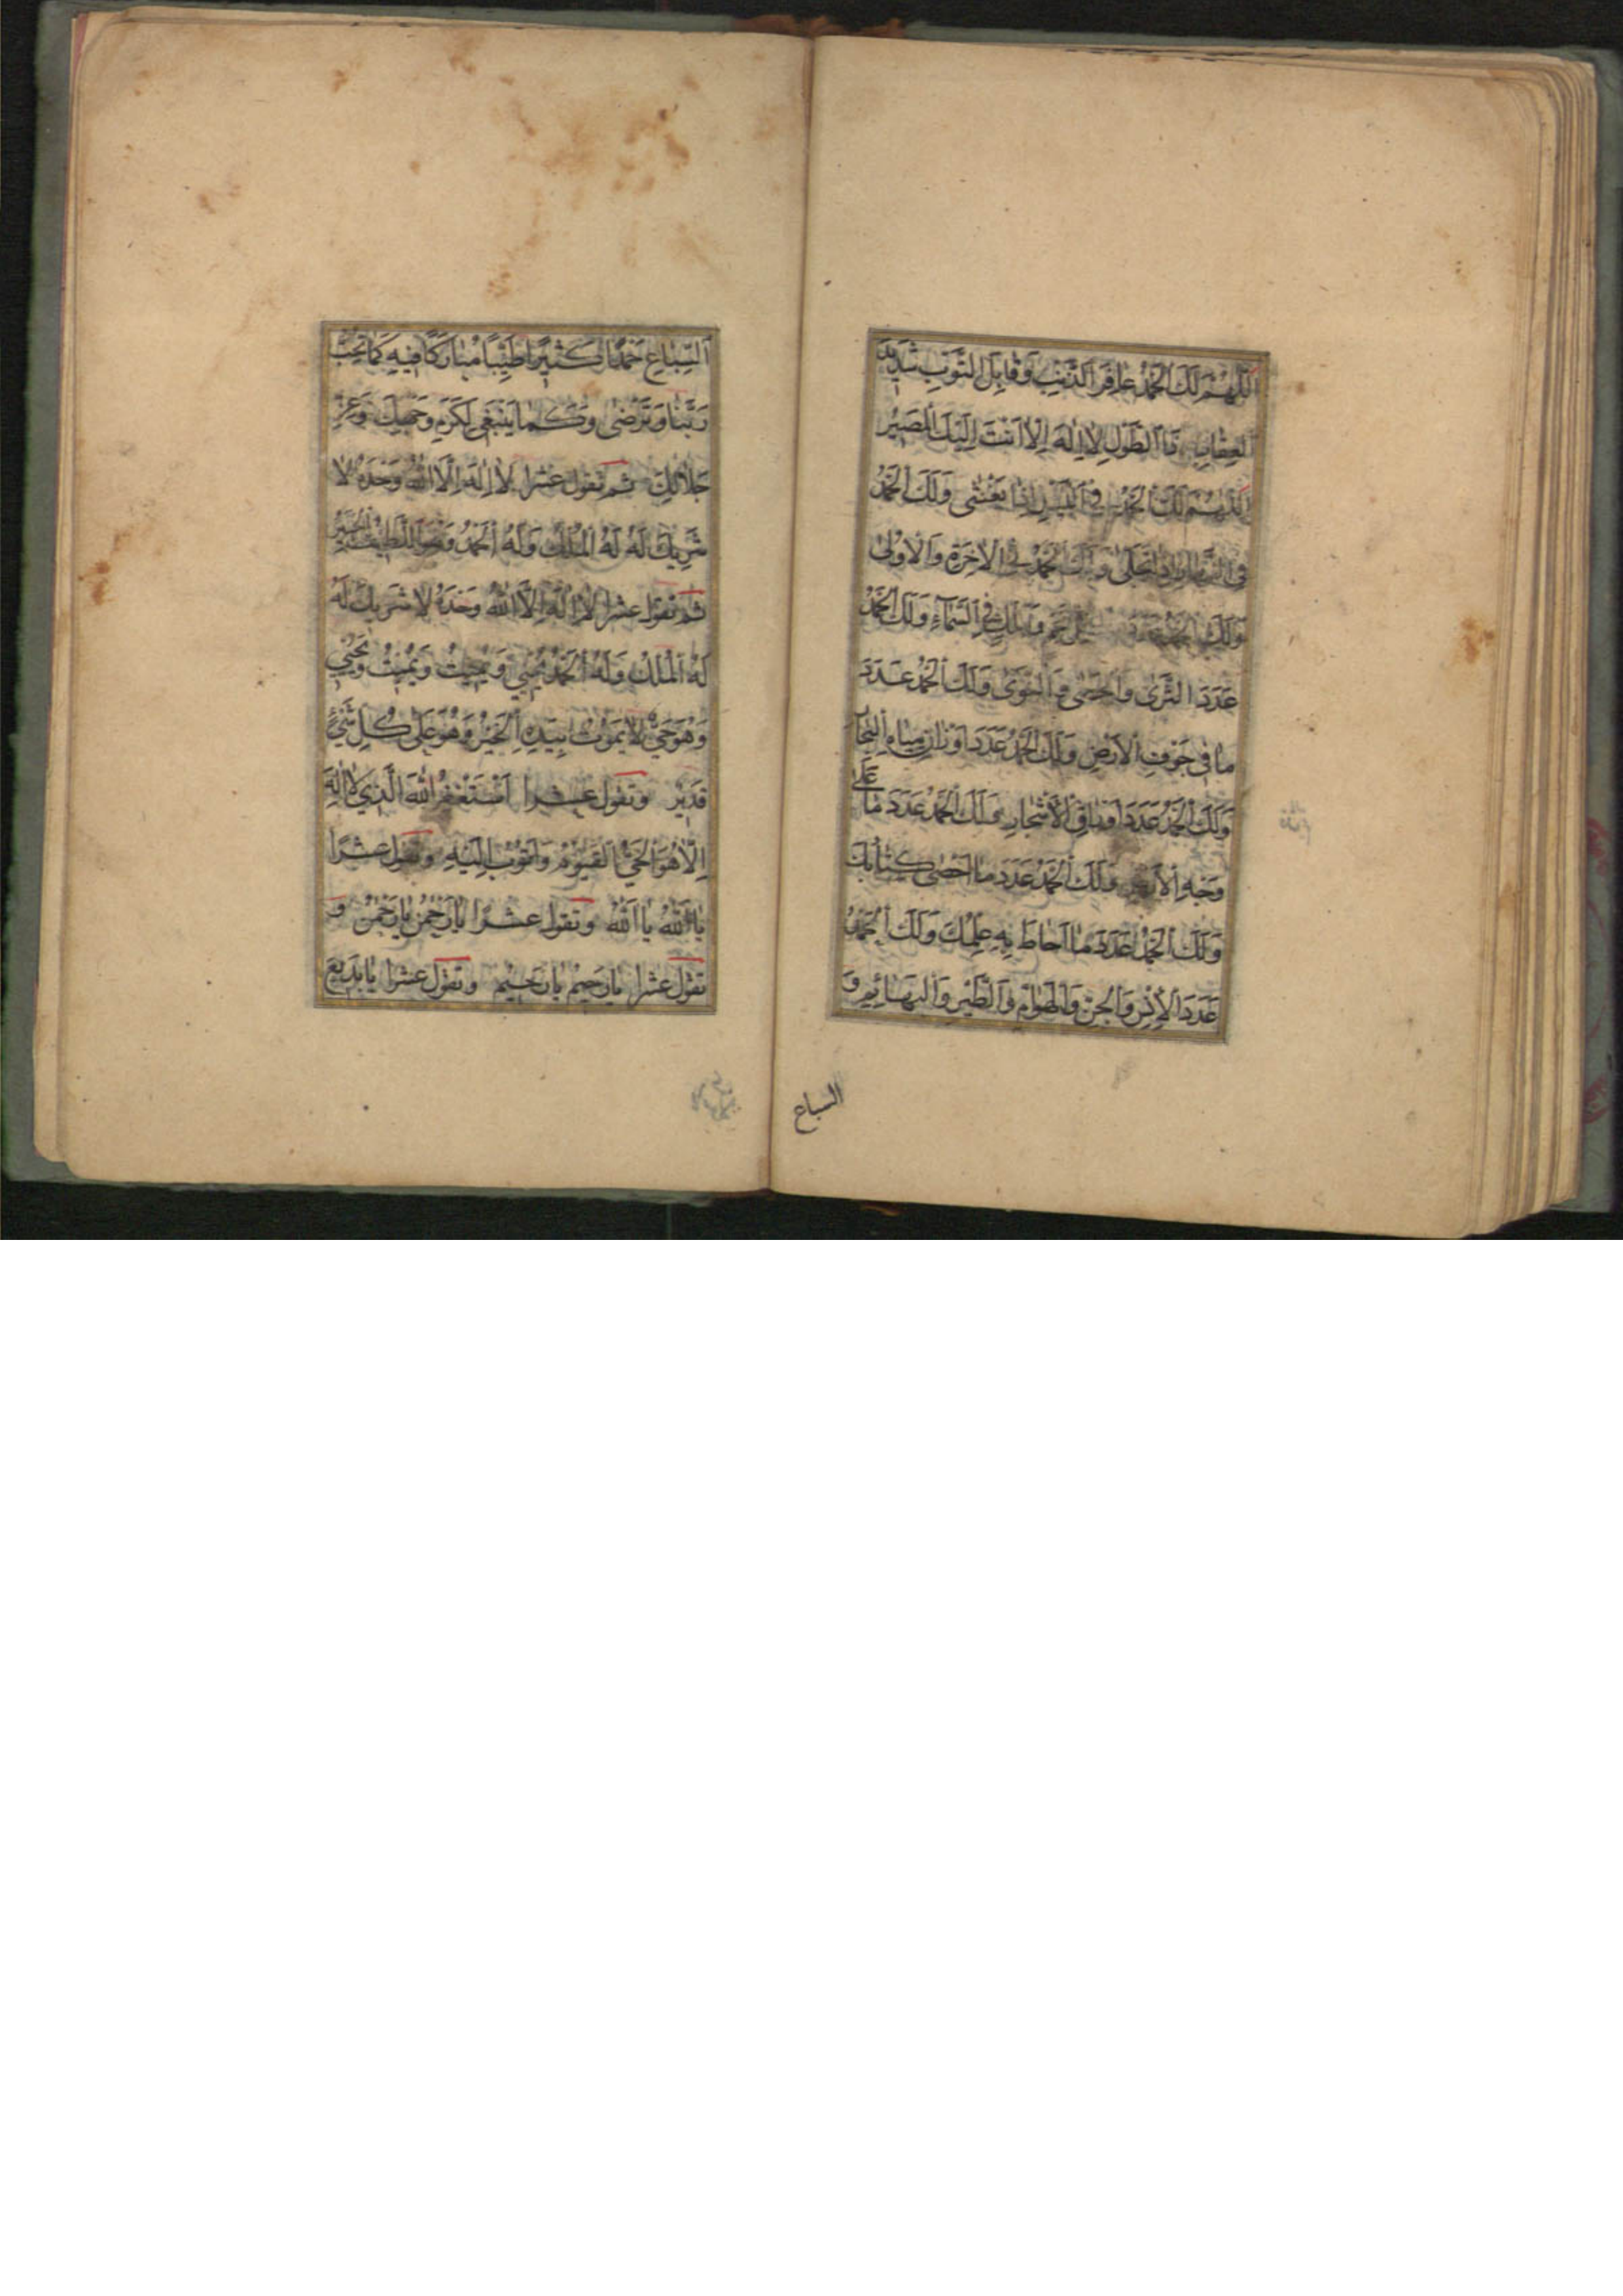 اَللّٰهُمَّ لَكَ الْحَمْدُ غَافِرَ الذَّنْبِ وَقَابِلَ التَّوْبِ شَدِيدَ
الْعِقَابِ ذَا الطَّوْلِ لَا اِلٰهَ اِلَّا اَنْتَ اِلَيْكَ الْمَصِيْرُ
اَللّٰهُمَّ لَكَ الْحَمْدُ فِي اللَّيْلِ اِذَا يَغْشٰى وَلَكَ الْحَمْدُ
فِي النَّهَارِ اِذَا تَجَلّٰى وَلَكَ الْحَمْدُ فِي الْاٰخِرَةِ وَالْاُوْلٰى
وَلَكَ الْحَمْدُ عَدَدَ كُلِّ نَجْمٍ وَمَلَكٍ فِي السَّمَآءِ وَلَكَ الْحَمْدُ
عَدَدَ الثَّرٰى وَالْحَصٰى وَالنَّوٰى وَلَكَ الْحَمْدُ عَدَدَ
مَا فِي جَوْفِ الْاَرْضِ وَلَكَ الْحَمْدُ عَدَدَ اَوْزَانِ مِيَاهِ الْبِحَارِ
وَلَكَ الْحَمْدُ عَدَدَ اَوْرَاقِ الْاَشْجَارِ وَلَكَ الْحَمْدُ عَدَدَ مَا عَلٰى
وَجْهِ الْاَرْضِ وَلَكَ الْحَمْدُ عَدَدَ مَا اَحْصٰى كِتَابُكَ
وَلَكَ الْحَمْدُ عَدَدَ مَا اَحَاطَ بِهِ عِلْمُكَ وَلَكَ الْحَمْدُ
عَدَدَ الْاِنْسِ وَالْجِنِّ وَالْهَوَامِّ وَالطَّيْرِ وَالْبَهَائِمِ وَ
السباع
اَلسِّبَاعِ حَمْدًا كَثِيْرًا طَيِّبًا مُبَارَكًا فِيْهِ كَمَا تُحِبُّ
رَبَّنَا وَتَرْضٰى وَكَمَا يَنْبَغِي لِكَرَمِ وَجْهِكَ وَعِزِّ
جَلَالِكَ ثم تقول عشرا لَا اِلٰهَ اِلَّا اللّٰهُ وَحْدَهُ لَا
شَرِيْكَ لَهُ لَهُ الْمُلْكُ وَلَهُ الْحَمْدُ وَهُوَ اللَّطِيْفُ الْخَبِيْرُ
ثم تقول عشرا لَا اِلٰهَ اِلَّا اللّٰهُ وَحْدَهُ لَا شَرِيْكَ لَهُ
لَهُ الْمُلْكُ وَلَهُ الْحَمْدُ يُحْيِي وَيُمِيْتُ وَيُمِيْتُ وَيُحْيِي
وَهُوَ حَيٌّ لَا يَمُوْتُ بِيَدِهِ الْخَيْرُ وَهُوَ عَلٰى كُلِّ شَيْءٍ
قَدِيْرٌ وتقول عشرا اَسْتَغْفِرُ اللّٰهَ الَّذِي لَا اِلٰهَ
اِلَّا هُوَ الْحَيُّ الْقَيُّوْمُ وَاَتُوْبُ اِلَيْهِ وتقول عشرا
يَا اَللّٰهُ يَا اَللّٰهُ وتقول عشرا يَا رَحْمٰنُ يَا رَحْمٰنُ و
تقول عشرا يَا رَحِيْمُ يَا رَحِيْمُ وتقول عشرا يَا بَدِيْعَ